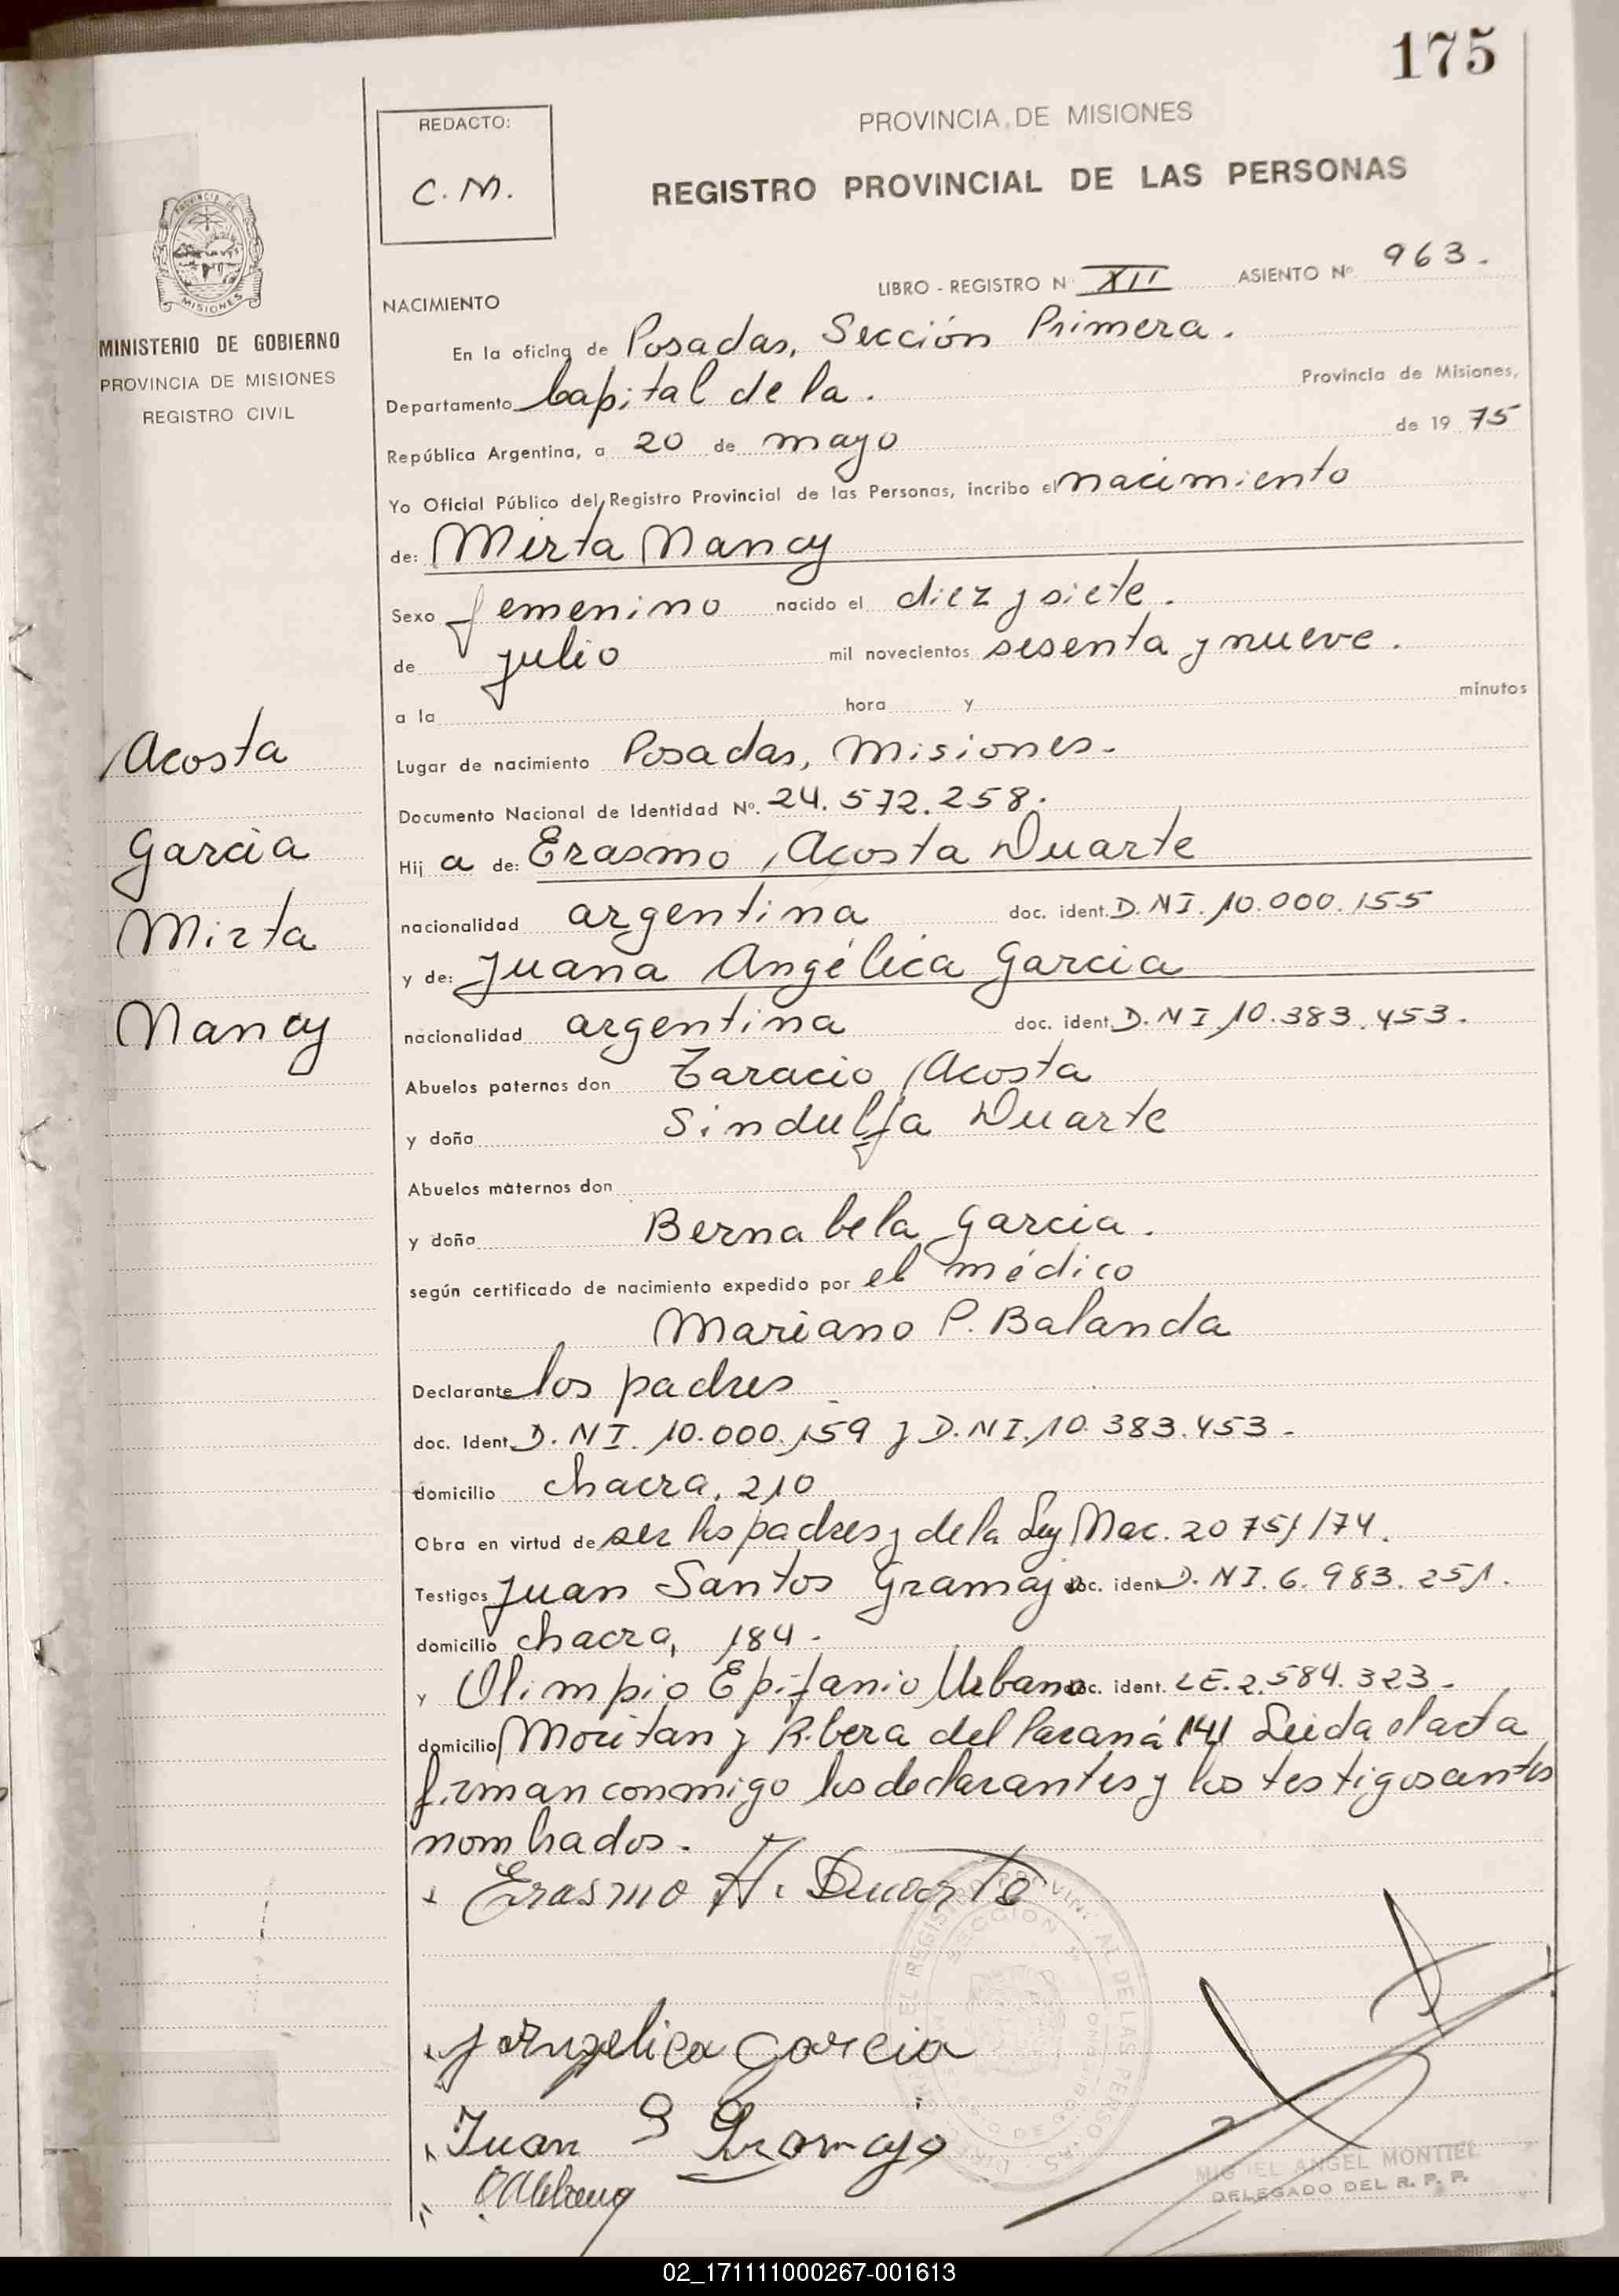 175
REDACTO:
C. M.
PROVINCIA DE MISIONES
REGISTRO PROVINCIAL DE LAS PERSONAS
PROVINCIA DE
MISIONES
MINISTERIO DE GOBIERNO
PROVINCIA DE MISIONES
REGISTRO CIVIL
LIBRO - REGISTRO N° XII ASIENTO N° 963.
NACIMIENTO
En la oficina de Posadas, Sección Primera.
Departamento Capital de la. Provincia de Misiones,
República Argentina, a 20 de mayo de 1975
Yo Oficial Público del Registro Provincial de las Personas, incribo el nacimiento
de: Mirta Nancy
Sexo femenino nacido el diez y siete.
de julio mil novecientos sesenta y nueve.
a la hora y minutos
Acosta
Garcia
Mirta
Nancy
Lugar de nacimiento Posadas, Misiones.
Documento Nacional de Identidad N°. 24.572.258.
Hij a de: Erasmo Acosta Duarte
nacionalidad argentina doc. ident. D.NI. 10.000.155
y de: Juana Angélica Garcia
nacionalidad argentina doc. ident. D.NI 10.383.453.
Abuelos paternos don Taracio Acosta
y doña Sindulfa Duarte
Abuelos maternos don
y doña Bernabela Garcia.
según certificado de nacimiento expedido por el médico
Mariano P. Balanda
Declarante los padres
doc. Ident. D.NI. 10.000.159 y D.NI. 10.383.453.
domicilio chacra, 210
Obra en virtud de ser los padres y de la Ley Nac. 20751/74.
Testigos Juan Santos Gramajo doc. ident. D.NI. 6.983.251.
domicilio chacra, 184.
y Olimpio Epifanio Urbano doc. ident. LE. 2.584.323.
domicilio Moritan y Ribera del Paraná 141 Leida el acta
firman conmigo los declarantes y los testigos antes
nombrados.
Erasmo A. Duarte
J Angelica Garcia
Juan S Gramajo
MIGUEL ANGEL MONTIEL
DELEGADO DEL R. P. P.
02_171111000267-001613